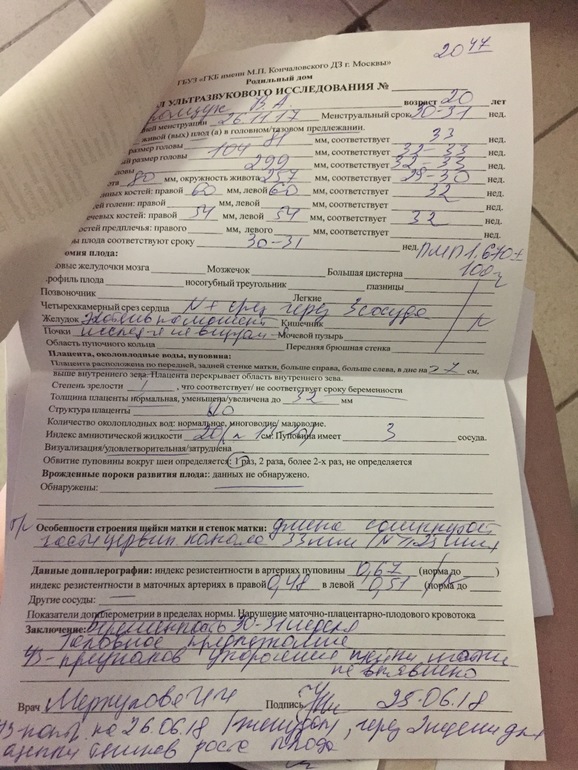 20 47
ГБУЗ «ГКБ имени М.П. Кончаловского ДЗ г. Москвы»
Родильный дом
Л УЛЬТРАЗВУКОВОГО ИССЛЕДОВАНИЯ №
В А возраст 20 лет
ней менструации 26.11.17 Менструальный срок 30-31 нед.
живой (вых) плод (а) в головном/тазовом предлежании.
размер головы 81 мм, соответствует 33 нед.
ый размер головы 104 мм, соответствует 32-33 нед.
овы 299 мм, соответствует 32-33 нед.
ота 80 мм, окружность живота 257 мм, соответствует 29-30 нед.
нных костей: правой 60 мм, левой 60 мм, соответствует 32 нед.
тей голени: правой мм, левой мм, соответствует нед.
ечевых костей: правой 54 мм, левой 54 мм, соответствует 32 нед.
остей предплечья: правого мм, левого мм, соответствует нед.
ры плода соответствуют сроку 30-31 нед. ПМП 1.670 ±
100 г
омия плода:
овые желудочки мозга Мозжечок Большая цистерна
рофиль плода носогубный треугольник глазницы
Позвоночник Легкие
Четырехкамерный срез сердца N + срез через 3 сосуда
Желудок на момент Кишечник N
Почки Мочевой пузырь
Область пупочного кольца Передняя брюшная стенка
Плацента, околоплодные воды, пуповина:
Плацента расположена по передней, задней стенке матки, больше справа, больше слева, в дне на >7 см.
выше внутреннего зева. Плацента перекрывает область внутреннего зева.
Степень зрелости 1, что соответствует/ не соответствует сроку беременности
Толщина плаценты нормальная, уменьшена/увеличена до 32 мм
Структура плаценты
Количество околоплодных вод: нормальное, многоводие/ маловодие.
Индекс амниотической жидкости 20 см. Пуповина имеет 3 сосуда.
Визуализация/удовлетворительная/затруднена
Обвитие пуповины вокруг шеи определяется: 1 раз, 2 раза, более 2-х раз, не определяется
Врожденные пороки развития плода:: данных не обнаружено.
Обнаружены:
Особенности строения шейки матки и стенок матки: длина сомкнутой
части цервик. канала 33 мм
Данные допплерографии: индекс резистентности в артериях пуповины 0,67 (норма до )
индекс резистентности в маточных артериях в правой 0,48 в левой 0,51 (норма до )
Другие сосуды:
Показатели допплерометрии в пределах нормы. Нарушение маточно-плацентарно-плодового кровотока
Заключение: Беременность 30-31 неделя
Головное предлежание
УЗ-признаков укорочения шейки матки
не выявлено
Врач Подпись 25.06.18
на 26.06.18 через 2 недели для
оценки темпов роста плода